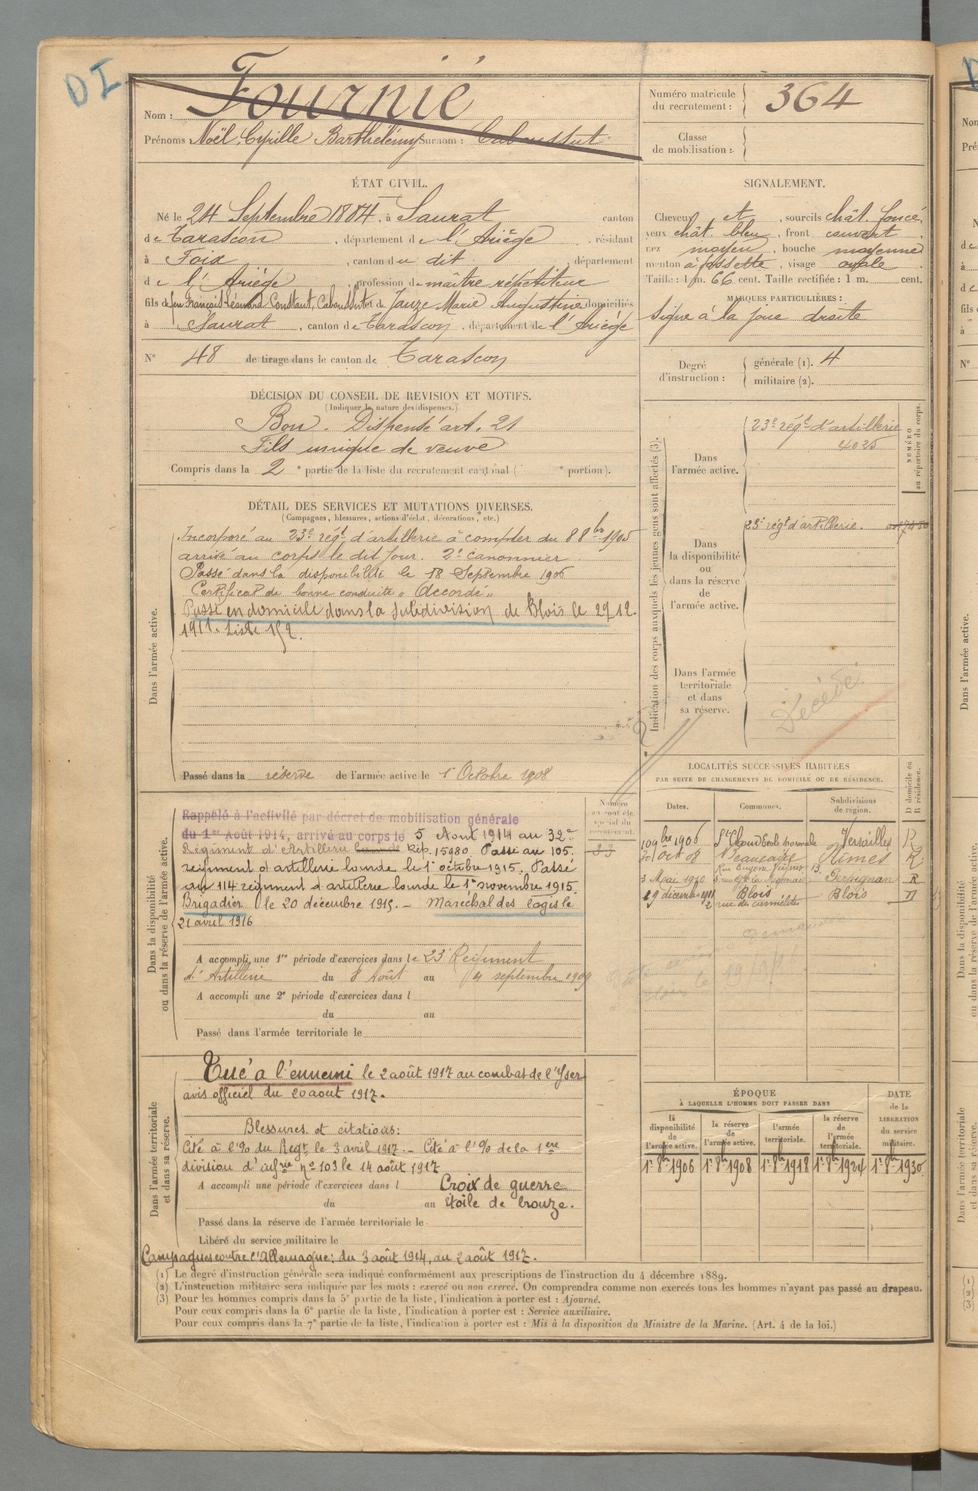 D I
Nom : Fournié
Prénoms Noël, Cyrille Barthélémy Surnom : Caboustut
Numéro matricule du recrutement : 364
Classe de mobilisation :
ÉTAT CIVIL.
Né le 24 Septembre 1884, à Saurat canton
de Tarascon, département de l'Ariège, résidant
à Foix, canton du dit, département
de l'Ariège, profession de maître répétiteur
fils de feu François Léonard Constant et de Jauze Marie Augustine domiciliés
à Saurat, canton de Tarascon, département de l'Ariège
N° 48 de tirage dans le canton de Tarascon
SIGNALEMENT.
Cheveux et, sourcils chât. foncé,
yeux chât. bleu, front couvert
nez moyen, bouche moyenne
menton à fossette, visage ovale
Taille : 1 m. 66 cent. Taille rectifiée : 1 m. cent.
MARQUES PARTICULIÈRES :
signe à la joue droite
Degré d'instruction : générale (1). 4
militaire (2).
DÉCISION DU CONSEIL DE REVISION ET MOTIFS.
(Indiquer la nature des dispenses.)
Bon. Dispensé art. 21
Fils unique de veuve
Compris dans la 2e partie de la liste du recrutement cantonal ( e portion).
DÉTAIL DES SERVICES ET MUTATIONS DIVERSES.
(Campagnes, blessures, actions d'éclat, décorations, etc.)
Dans l'armée active.
Incorporé au 23e régt d'artillerie à compter du 8 8bre 1905
arrivé au corps le dit jour. 2e canonnier
Passé dans la disponibilité le 18 Septembre 1906
Certificat de bonne conduite "Accordé"
Passé en domicile dans la subdivision de Blois le 29.12.
1911. Liste 152.
Passé dans la réserve de l'armée active le 1 Octobre 1908
Indication des corps auxquels les jeunes gens sont affectés (3).
NUMÉRO au répertoire du corps.
Dans l'armée active.
23e régt d'artillerie
4025
Dans la disponibilité ou dans la réserve de l'armée active.
23e régt d'artillerie.
Dans l'armée territoriale et dans sa réserve.
Décédé
Dans la disponibilité ou dans la réserve de l'armée active.
Rappelé à l'activité par décret de mobilisation générale
du 1er Août 1914, arrivé au corps le 5 Aout 1914 au 32e
Régiment d'Artillerie Rép. 15980. Passé au 105.
régiment d'artillerie lourde le 1er octobre 1915. Passé
au 114 régiment d'artillerie lourde le 1er novembre 1915.
Brigadier le 20 décembre 1915. - Maréchal des logis le
21 avril 1916
A accompli une 1re période d'exercices dans le 23e Régiment
d'Artillerie du 8 Août au 4 septembre 1909
A accompli une 2e période d'exercices dans l
du au
Passé dans l'armée territoriale le
LOCALITÉS SUCCESSIVES HABITÉES
PAR SUITE DE CHANGEMENTS DE DOMICILE OU DE RÉSIDENCE.
Dates. Communes. Subdivisions de région. D domicile ou R résidence.
10 9bre 1906 St Cloud Ecole normale Versailles R
30 Oct 08 Beaucaire Nîmes R
3 Mai 1910 Perpignan R
29 décembre 1911 Blois Blois D
Dans l'armée territoriale et dans sa réserve.
Tué à l'ennemi le 2 août 1917 au combat de l'Yser
avis officiel du 20 aout 1917.
Blessures et citations:
Cité à l'% du Régt le 3 avril 1917 - Cité à l'% de la 1ère
division d'infrie n° 103 le 14 août 1917
A accompli une période d'exercices dans l Croix de guerre
du au étoile de bronze.
Passé dans la réserve de l'armée territoriale le
Libéré du service militaire le
Campagnes contre l'Allemagne: du 3 août 1914, au 2 août 1917.
ÉPOQUE
À LAQUELLE L'HOMME DOIT PASSER DANS
DATE de la LIBÉRATION du service militaire.
la disponibilité de l'armée active. la réserve de l'armée active. l'armée territoriale. la réserve de l'armée territoriale.
1er 8bre 1906 1er 8bre 1908 1er 8bre 1918 1er 8bre 1924 1er 8bre 1930
(1) Le degré d'instruction générale sera indiqué conformément aux prescriptions de l'instruction du 4 décembre 1889.
(2) L'instruction militaire sera indiquée par les mots : exercé ou non exercé. On comprendra comme non exercés tous les hommes n'ayant pas passé au drapeau.
(3) Pour les hommes compris dans la 5e partie de la liste, l'indication à porter est : Ajourné.
Pour ceux compris dans la 6e partie de la liste, l'indication à porter est : Service auxiliaire.
Pour ceux compris dans la 7e partie de la liste, l'indication à porter est : Mis à la disposition du Ministre de la Marine. (Art. 4 de la loi.)